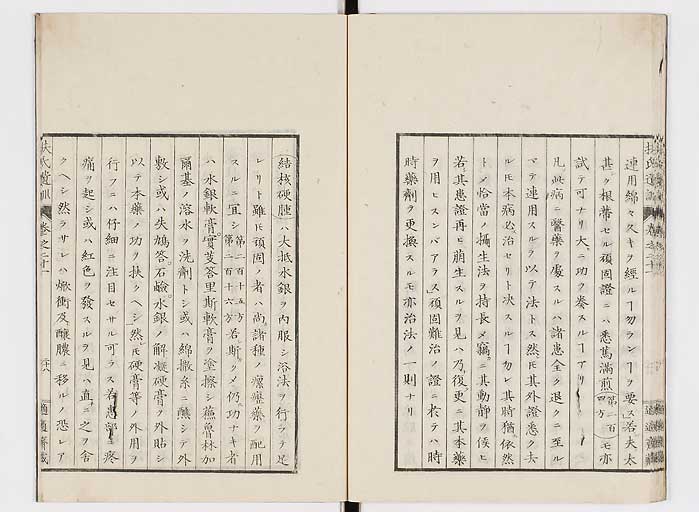 連用綿々久キヲ經ルヿ勿ランヿヲ要ス若夫太
甚ク根蔕セル頑固證ニハ悉萬滿煎第一百四方モ亦
試テ可ナリ大ニ功ヲ奏スルヿアリ
凡此病ニ醫藥ヲ處スルハ諸患全ク退クニ至ル
マテ連用スルヲ以テ法トス然𪜈其外證悉ク去
ルモ本病必治セリト决スルヿカレ其時猶依然
トメ恰當ノ攝生法ヲ持長メ竊ニ其動靜ヲ候ヒ
若其患證再ヒ萠生スルヲ見ハ乃復更ニ其本藥
ヲ用ヒスンバアラス頑固難治ノ證ニ於テハ時
時藥劑ヲ更換スルモ亦治法ノ一則ナリ
結核硬腫ハ大抵水銀ヲ内服シ浴法ヲ行ヲテ足
レリト雖𪜈頑固ノ者ハ尚諸種ノ瘰癧藥ヲ配用
スルニ宜シ第二百十五方第二百十六方若斯クメ仍功ナキ者
ハ水銀軟膏實芰答里斯軟膏ヲ塗擦シ蕉魯林加
爾基ノ溶水ヲ洗劑トシ或ハ綿撒糸ニ蘸シテ外
敷シ或ハ失鳩答石鹼水銀ノ解凝硬膏ヲ外貼シ
以テ本藥ノ功ヲ扶クヘシ然𪜈硬膏等ノ外用ヲ
行フニハ仔細ニ注目セサル可ラス若患部ニ疼
痛ヲ起シ或ハ紅色ヲ發スルヲ見ハ直ニ之ヲ舍
クヘシ然ラサレハ焮衝及釀膿ニ移ルノ恐レア
扶氏遺訓 卷之二十一
適適齋藏